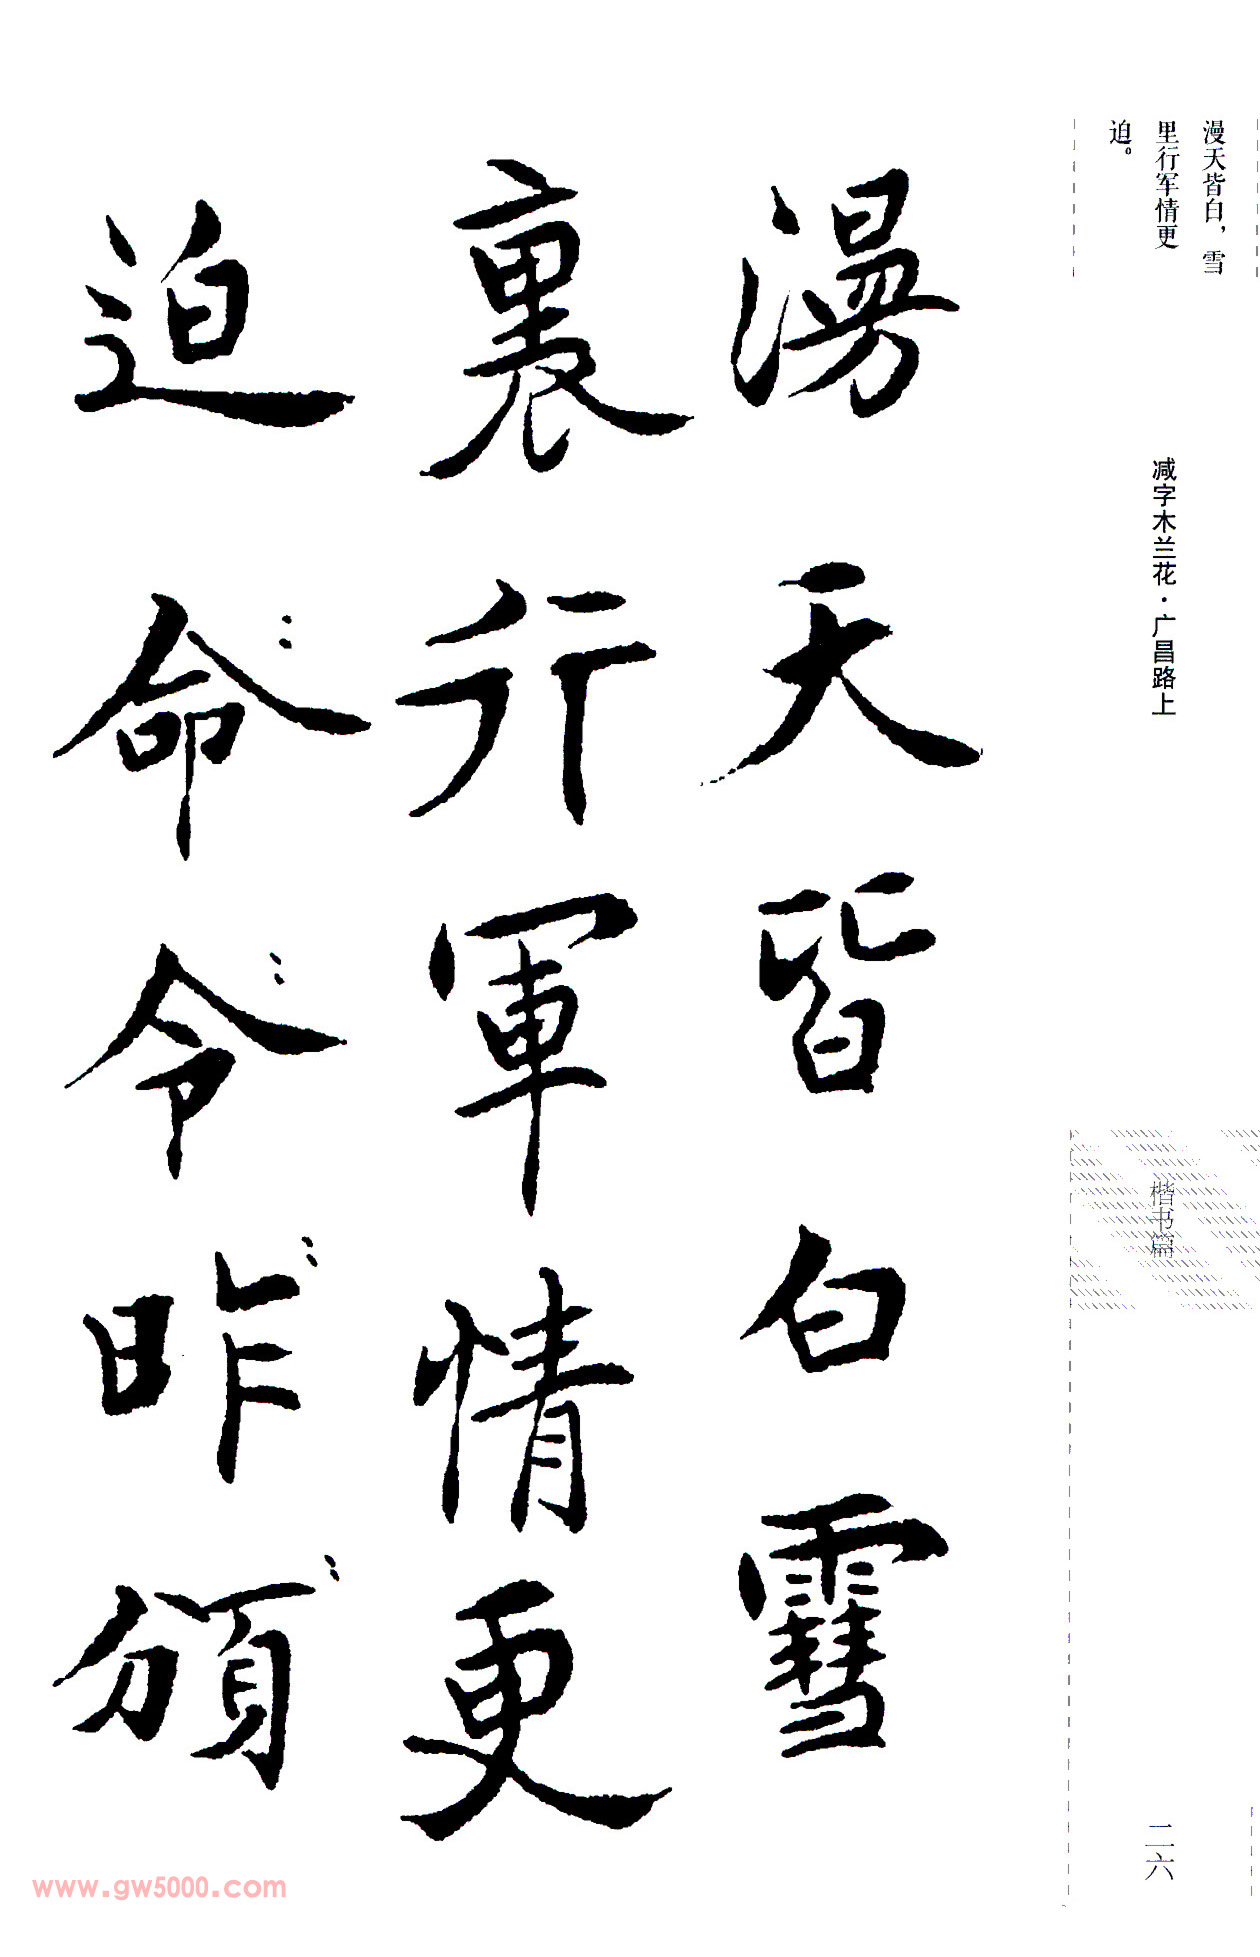 漫天皆白，雪
里行军情更
迫。
减字木兰花·广昌路上
楷书篇
二六
漫天皆白雪
裏行軍情更
迫命令昨頒
www.gw5000.com